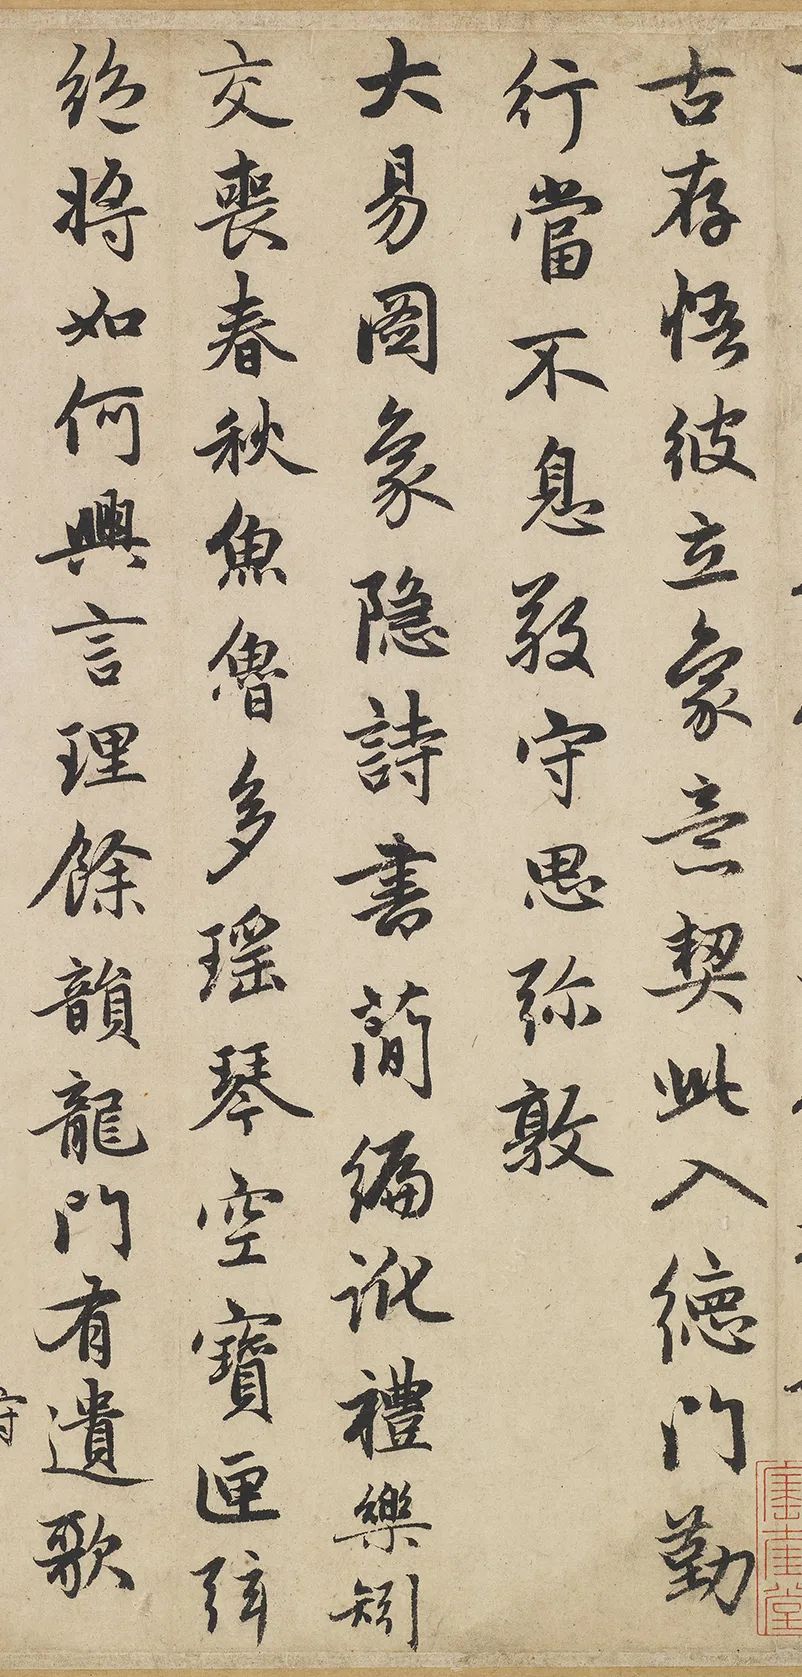 古存悟彼立象意契此入德門勤
行當不息敬守思弥敦
大易圖象隐詩書簡編訛禮樂矧
交喪春秋魚魯多瑶琴空寶匣弦
絶將如何興言理餘韻龍門有遺歌